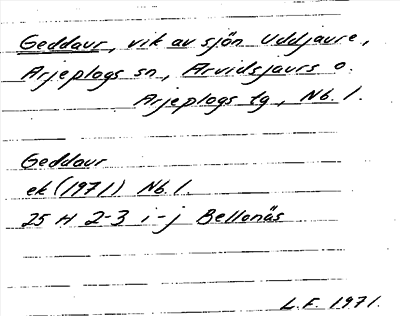 Geddaur, vik av sjön Uddjaure,
Arjeplogs sn, Arvidsjaurs o.
Arjeplogs tg, Nb. l.
Geddaur
ek (1971) Nb. l.
25 H 2-3 i-j Bellonäs
L.F. 1971.